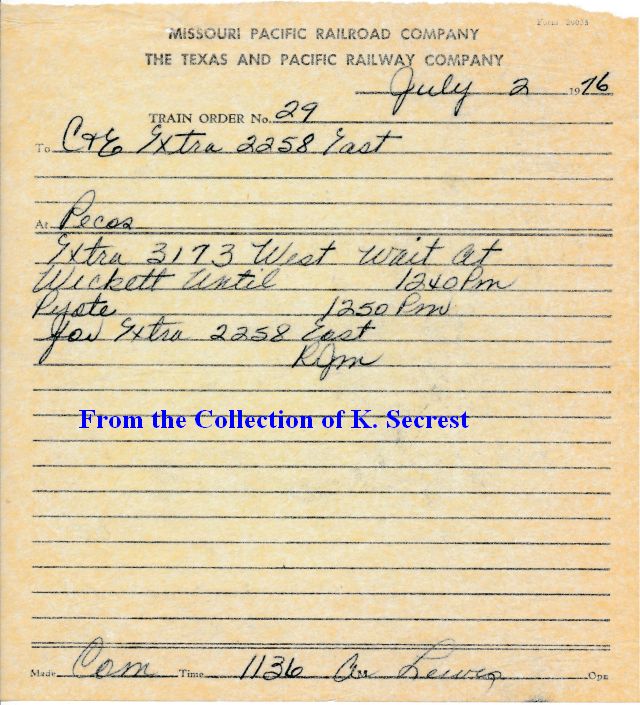 Form 2603A
MISSOURI PACIFIC RAILROAD COMPANY
THE TEXAS AND PACIFIC RAILWAY COMPANY
July 2 1976
TRAIN ORDER No. 29
To C&E Extra 2258 East
At Pecos
Extra 3173 West Wait At
Wickett Until 1240 Pm
Pyote 1250 Pm
for Extra 2258 East
RJm
From the Collection of K. Secrest
Made Com Time 1136 Am Lewis Opr.